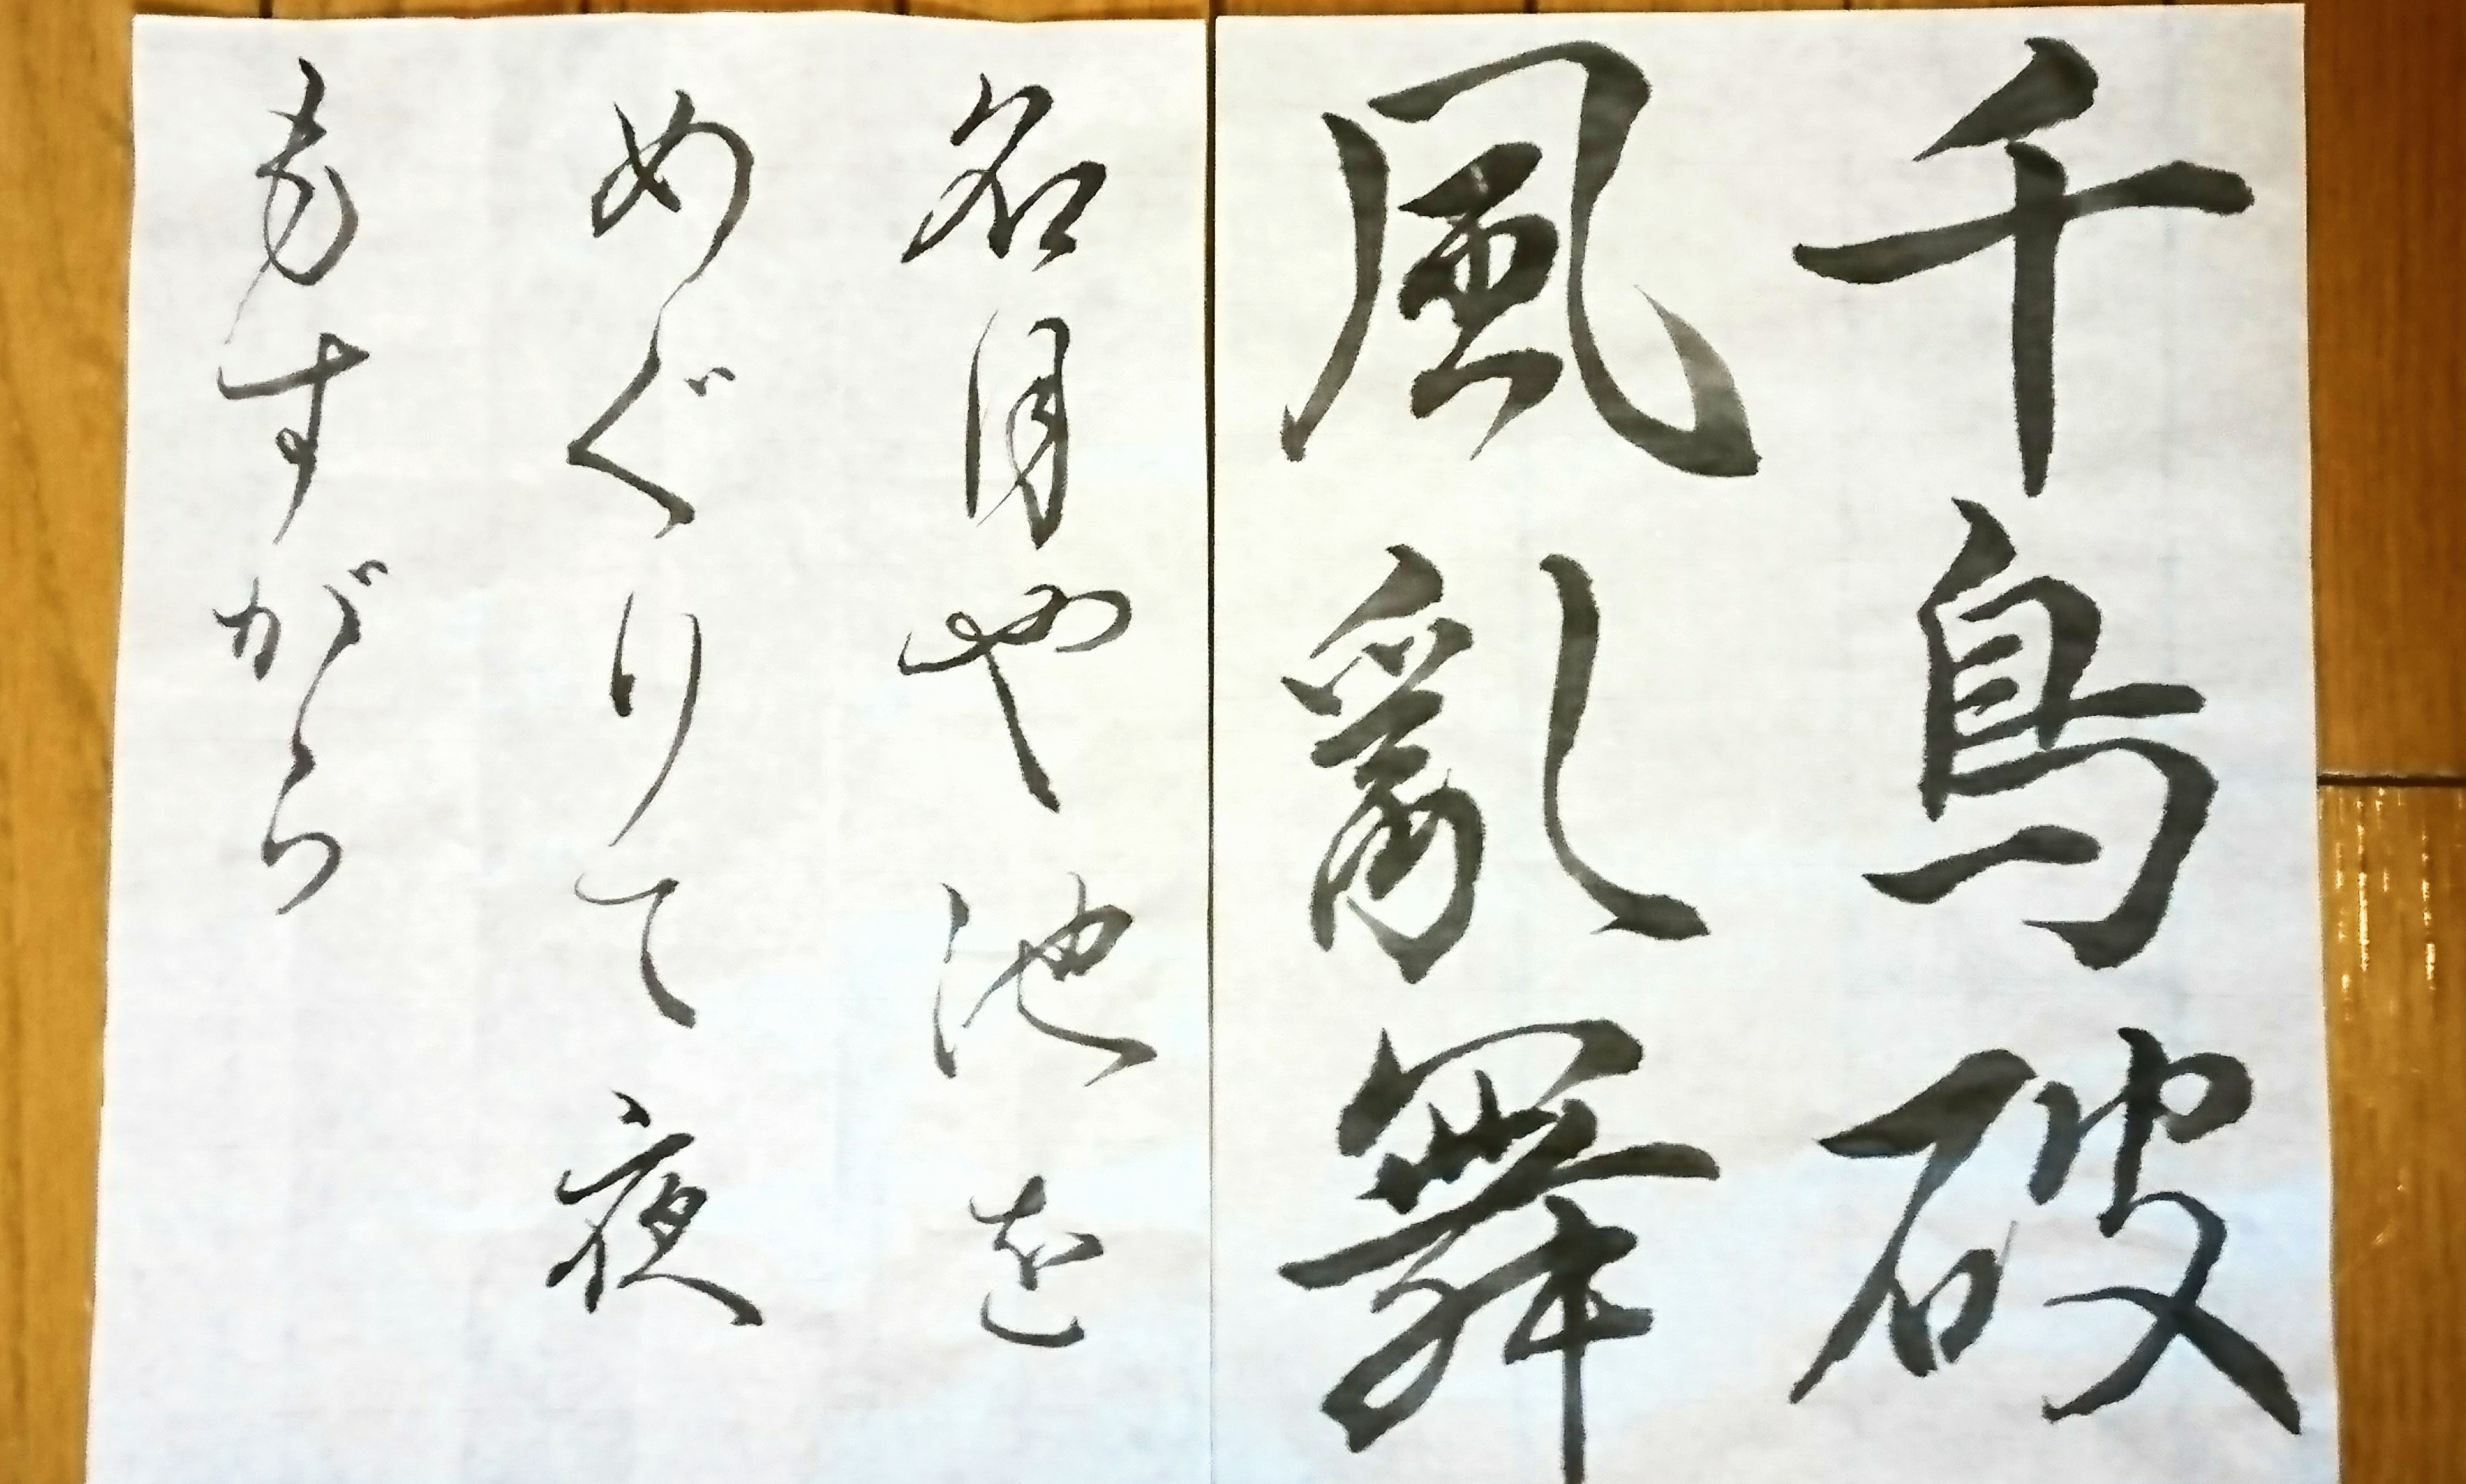 千鳥破
風亂舞
名月や池を
めぐりて夜
もすがら